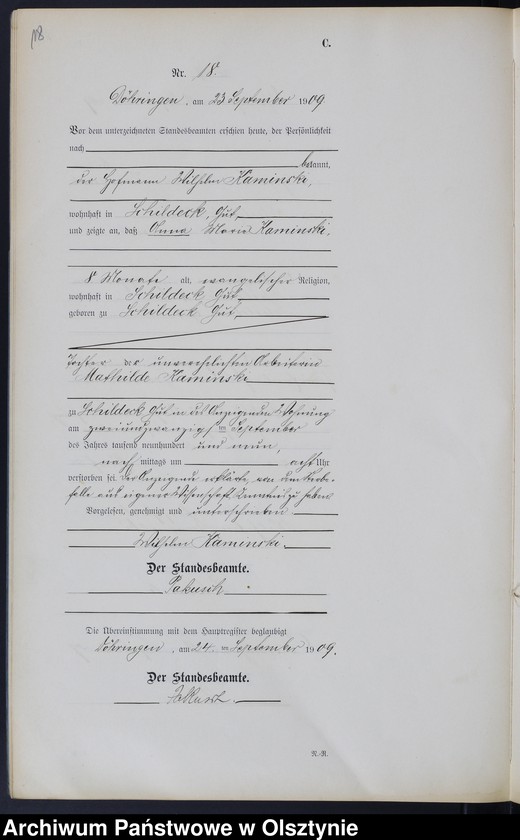 118
C.
Nr. 18.
Döhringen, am 23 September 1909.
Vor dem unterzeichneten Standesbeamten erschien heute, der Persönlichkeit
nach
bekannt,
der Hofmann Wilhelm Kaminski,
wohnhaft in Schildeck, Gut,
und zeigte an, daß Anna Marie Kaminski,
8 Monate alt, evangelischer Religion,
wohnhaft in Schildeck, Gut
geboren zu Schildeck, Gut,
Tochter der unverehelichten Arbeiterin
Mathilde Kaminski
zu Schildeck Gut in des Anzeigenden Wohnung
am zweiundzwanzigsten September
des Jahres tausend neunhundert und neun,
nachmittags um acht Uhr
verstorben sei. Der Anzeigende erklärte, von dem Sterbe-
falle aus eigener Wissenschaft Kenntnis zu haben
Vorgelesen, genehmigt und unterschrieben
Wilhelm Kaminski.
Der Standesbeamte.
Die Übereinstimmung mit dem Hauptregister beglaubigt
Döhringen, am 24. September 1909.
Der Standesbeamte.
N.-R.
Archiwum Państwowe w Olsztynie